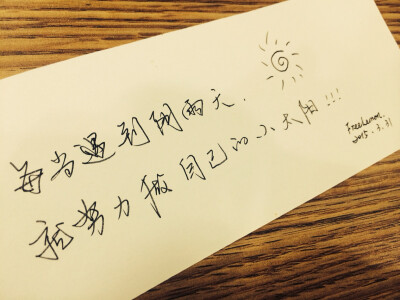 每当遇到阴雨天.
我努力做自己的小太阳!!!
FreeLemon.
2015.7.31